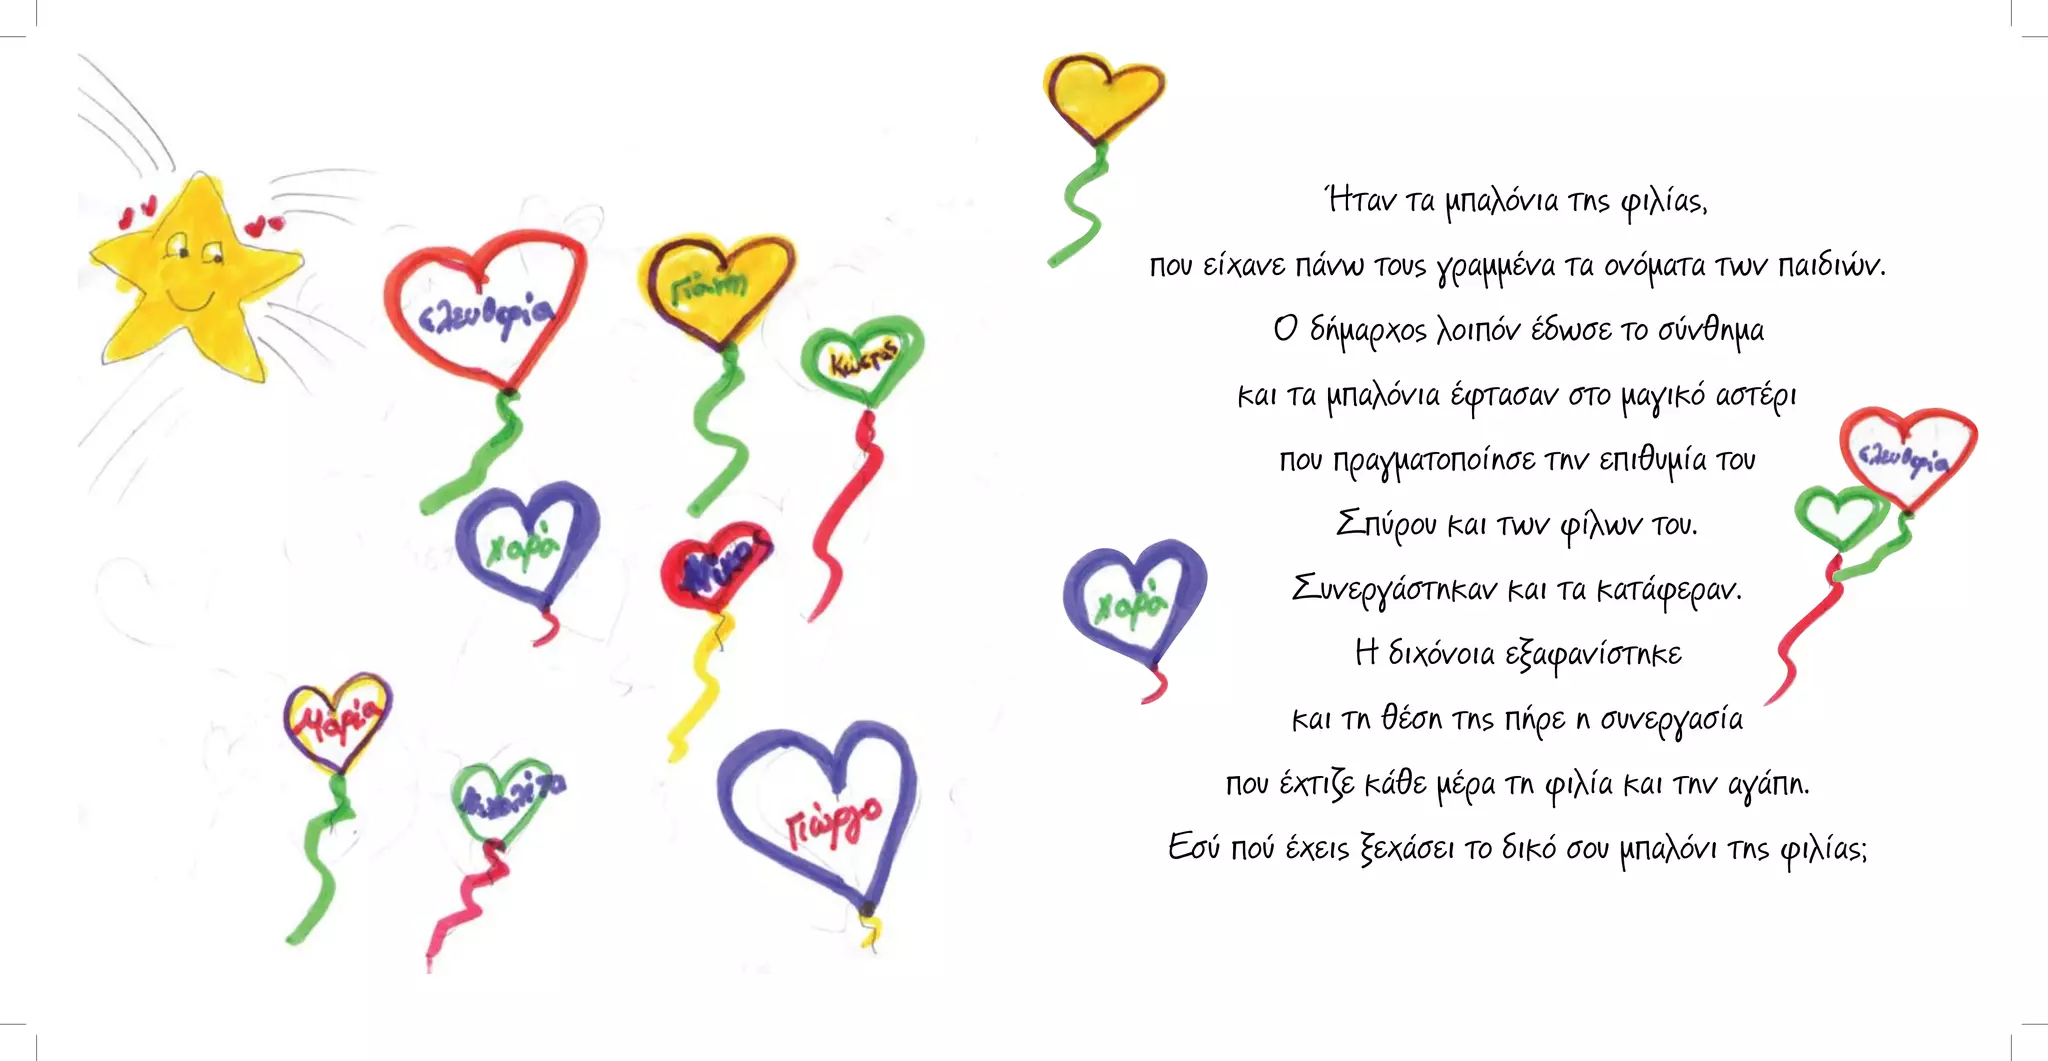 ελευθερία
Γιάννη
Κώστας
χαρά
Νίκος
Μαρία
Νικολέτα
Γιώργο
Ήταν τα μπαλόνια της φιλίας,
που είχανε πάνω τους γραμμένα τα ονόματα των παιδιών.
Ο δήμαρχος λοιπόν έδωσε το σύνθημα
και τα μπαλόνια έφτασαν στο μαγικό αστέρι
που πραγματοποίησε την επιθυμία του
Σπύρου και των φίλων του.
Συνεργάστηκαν και τα κατάφεραν.
Η διχόνοια εξαφανίστηκε
και τη θέση της πήρε η συνεργασία
που έχτιζε κάθε μέρα τη φιλία και την αγάπη.
Εσύ πού έχεις ξεχάσει το δικό σου μπαλόνι της φιλίας;
ελευθερία
χαρά